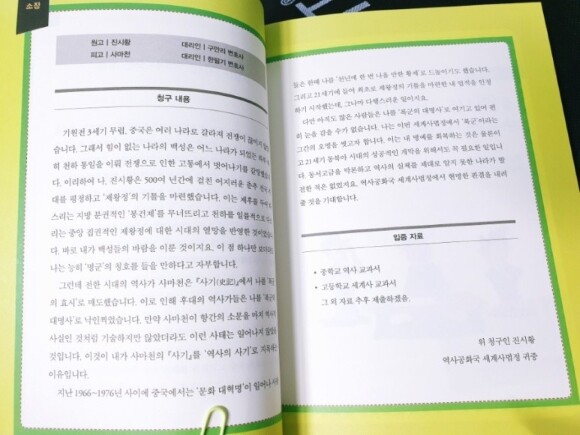 소장
원고 | 진시황 대리인 | 구만리 변호사
피고 | 사마천 대리인 | 한필기 변호사
청구 내용
기원전 3세기 무렵, 중국은 여러 나라로 갈라져 전쟁이 끊이지 않았
습니다. 그래서 힘이 없는 나라의 백성은 어느 나라가 되었든
히 천하 통일을 이뤄 전쟁으로 인한 고통에서 벗어나기를 갈망했습니
다. 이리하여 나, 진시황은 500여 년간에 걸친 어지러운 춘추 전국 시
대를 평정하고 '제왕정'의 기틀을 마련했습니다. 이는 제후를 두어
스리는 지방 분권적인 '봉건제'를 무너뜨리고 천하를 일률적으로 다스
리는 중앙 집권적인 제왕정에 대한 시대의 열망을 반영한 것이었습니
다. 바로 내가 백성들의 바람을 이룬 것이지요. 이 점 하나만 보더라도
나는 능히 '명군'의 칭호를 들을 만하다고 자부합니다.
그런데 전한 시대의 역사가 사마천은 『사기(史記)』에서 나를 '폭군
의 효시'로 매도했습니다. 이로 인해 후대의 역사가들은 나를 '폭군의
대명사'로 낙인찍었습니다. 만약 사마천이 항간의 소문을 마치 역사적
사실인 것처럼 기술하지만 않았더라도 이런 사태는 일어나지 않았을
것입니다. 이것이 내가 사마천의 『사기』를 '역사의 사기'로 지목하는
이유입니다.
지난 1966~1976년 사이에 중국에서는 '문화 대혁명'이 일어나
들은 한때 나를 '천년에 한 번 나올 만한 황제'로 드높이기도 했습니다.
그리고 21세기에 들어 최초로 제왕정의 기틀을 마련한 내 업적을 인정
하기 시작했는데, 그나마 다행스러운 일이지요.
다만 아직도 많은 사람들은 나를 '폭군의 대명사'로 여기고 있어 편
히 눈을 감을 수가 없습니다. 나는 이번 세계사법정에서 '폭군'이라는
그간의 오명을 씻고자 합니다. 이는 내 명예를 회복하는 것은 물론이
고 21세기 동북아 시대의 성공적인 개막을 위해서도 꼭 필요한 일입니
다. 동서고금을 막론하고 역사의 실체를 제대로 알지 못한 나라가 발
전한 적은 없었지요. 역사공화국 세계사법정에서 현명한 판결을 내려
줄 것을 기대합니다.
입증 자료
• 중학교 역사 교과서
• 고등학교 세계사 교과서
그 외 자료 추후 제출하겠음.
위 청구인 진시황
역사공화국 세계사법정 귀중